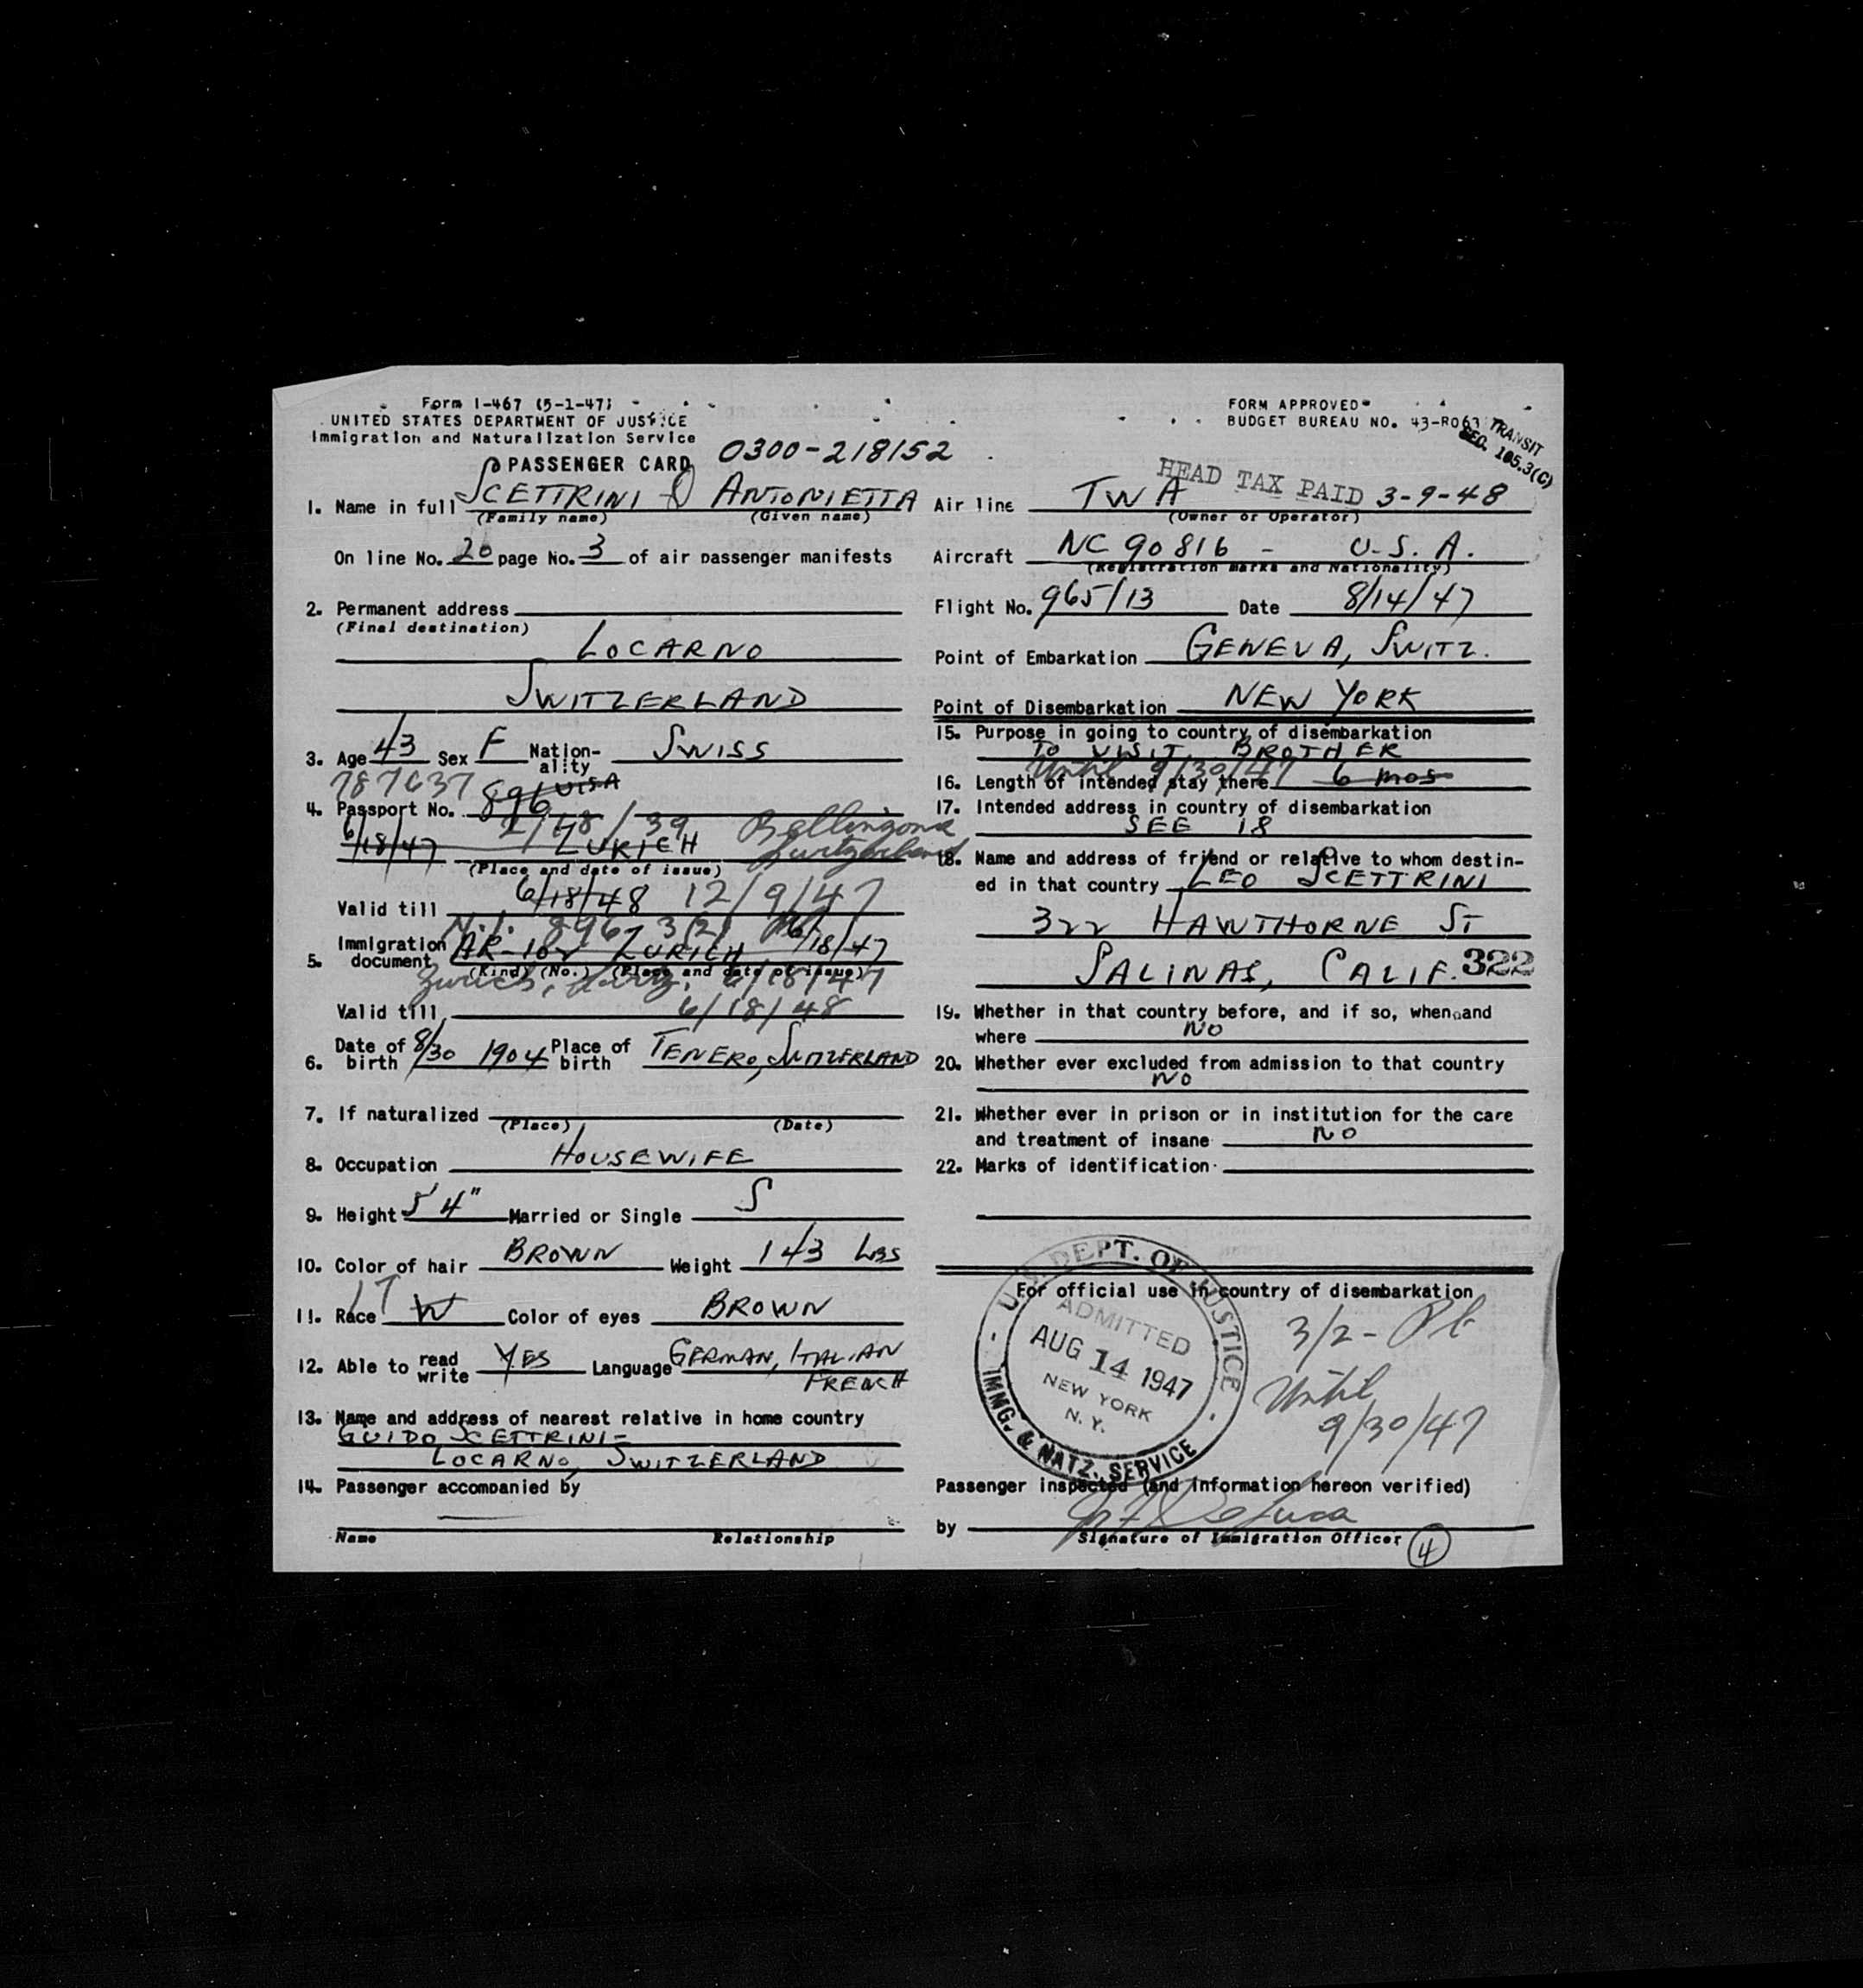 Form I-467 (5-1-47)
UNITED STATES DEPARTMENT OF JUSTICE
Immigration and Naturalization Service
PASSENGER CARD 0300-218152
1. Name in full SCETTRINI ANTONIETTA
(Family name) (Given name)
On line No. 20 page No. 3 of air passenger manifests
2. Permanent address
(Final destination)
LOCARNO
SWITZERLAND
3. Age 43 Sex F Nation-ality SWISS
787637 896 VISA
4. Passport No. 2/48/39 Bellinzona
6/18/47 ZURICH Switzerland
(Place and date of issue)
6/18/48 12/9/47
Valid till
N.I. 896 3(2)
5. Immigration document AR-102 ZURICH 6/18/47
(Kind) (No.) (Place and date of issue)
Zurich, 6/18/47
Valid till 6/18/48
6. Date of birth 8/30 1904 Place of birth TENERO, SWITZERLAND
7. If naturalized
(Place) (Date)
8. Occupation HOUSEWIFE
9. Height 5' 4" Married or Single S
10. Color of hair BROWN Weight 143 LBS
11. Race W Color of eyes BROWN
12. Able to read write YES Language GERMAN, ITALIAN
FRENCH
13. Name and address of nearest relative in home country
GUIDO SCETTRINI-
LOCARNO, SWITZERLAND
14. Passenger accompanied by
Name Relationship
FORM APPROVED
BUDGET BUREAU NO. 43-R063
TRANSIT
SEC. 105.3(C)
HEAD TAX PAID 3-9-48
Air line TWA
(Owner or Operator)
Aircraft NC 90816 - U.S.A.
(Registration marks and Nationality)
Flight No. 965/13 Date 8/14/47
Point of Embarkation GENEVA, SWITZ.
Point of Disembarkation NEW YORK
15. Purpose in going to country of disembarkation
TO VISIT BROTHER
Until 9/30/47
16. Length of intended stay there 6 mos
17. Intended address in country of disembarkation
SEE 18
18. Name and address of friend or relative to whom destin-
ed in that country LEO SCETTRINI
322 HAWTHORNE ST
SALINAS, CALIF. 322
19. Whether in that country before, and if so, when and
where NO
20. Whether ever excluded from admission to that country
NO
21. Whether ever in prison or in institution for the care
and treatment of insane NO
22. Marks of identification
For official use in country of disembarkation
U.S. DEPT. OF JUSTICE
ADMITTED
AUG 14 1947
NEW YORK
N. Y.
IMMG. & NATZ. SERVICE
3/2-
Until
9/30/47
Passenger inspected (and information hereon verified)
by
Signature of Immigration Officer 4